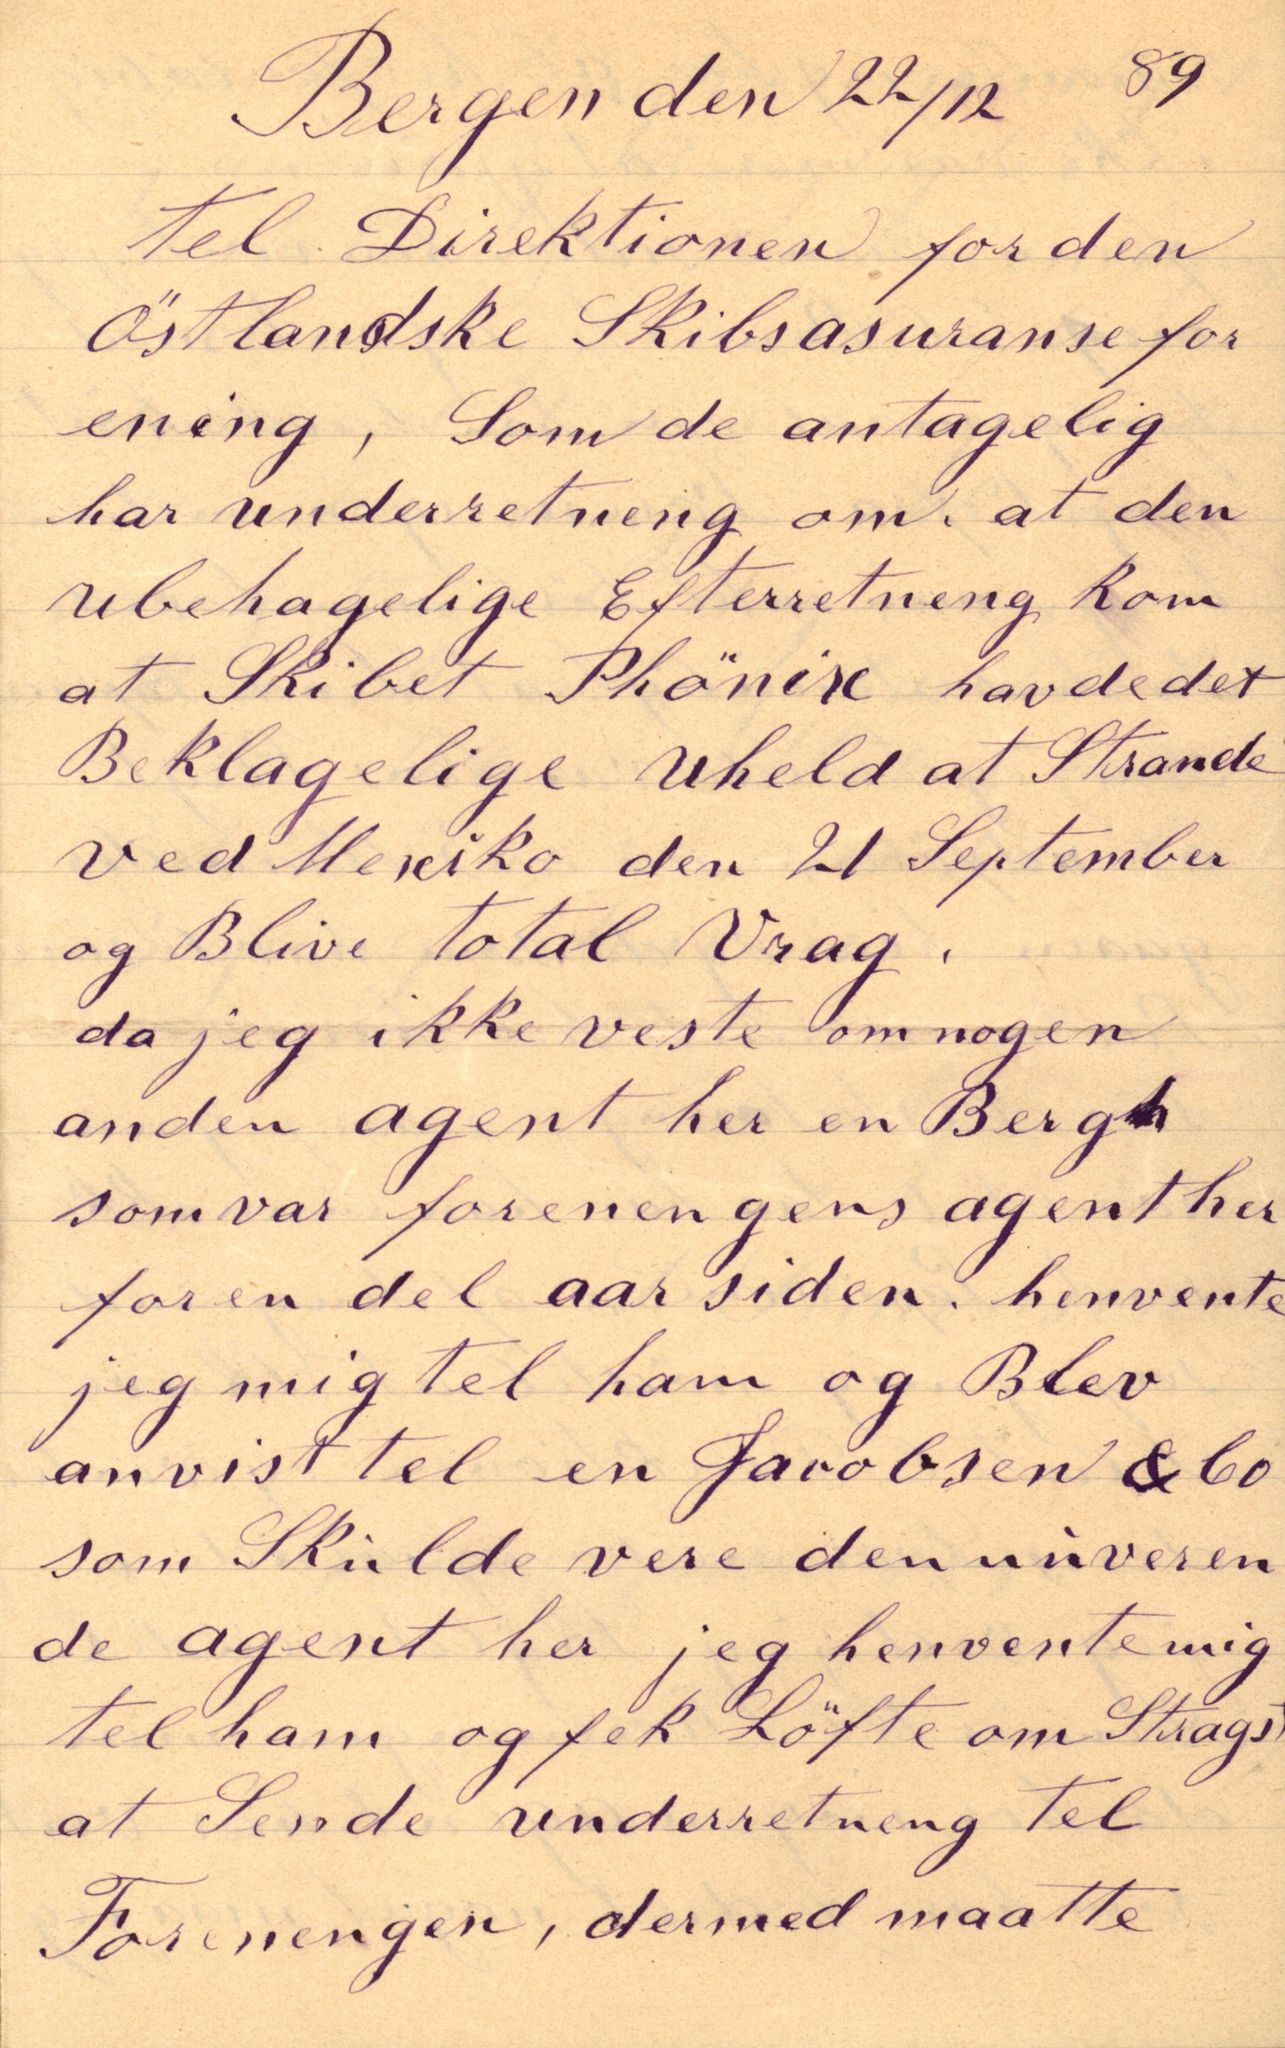 Bergen den 22/12 89
tel Direktionen for den
Östlandske Skibsasuranse for
ening, Som de antagelig
har underretneng om. at den
ubehagelige Efterretneng kom
at Skibet Phönix havde det
Beklagelige uheld at Strande
ved Mexiko den 21 September
og Blive total Vrag.
da jeg ikke veste om nogen
anden agent her en Bergh
som var forenengens agent her
for en del aar siden. henvente
jeg mig tel ham og Blev
anvist tel en Jacobsen & Co
som Skulde vere den nuveren
de agent her jeg henvente mig
tel ham og fek Löfte om Strags
at Sende underretneng tel
Forenengen, dermed maatte